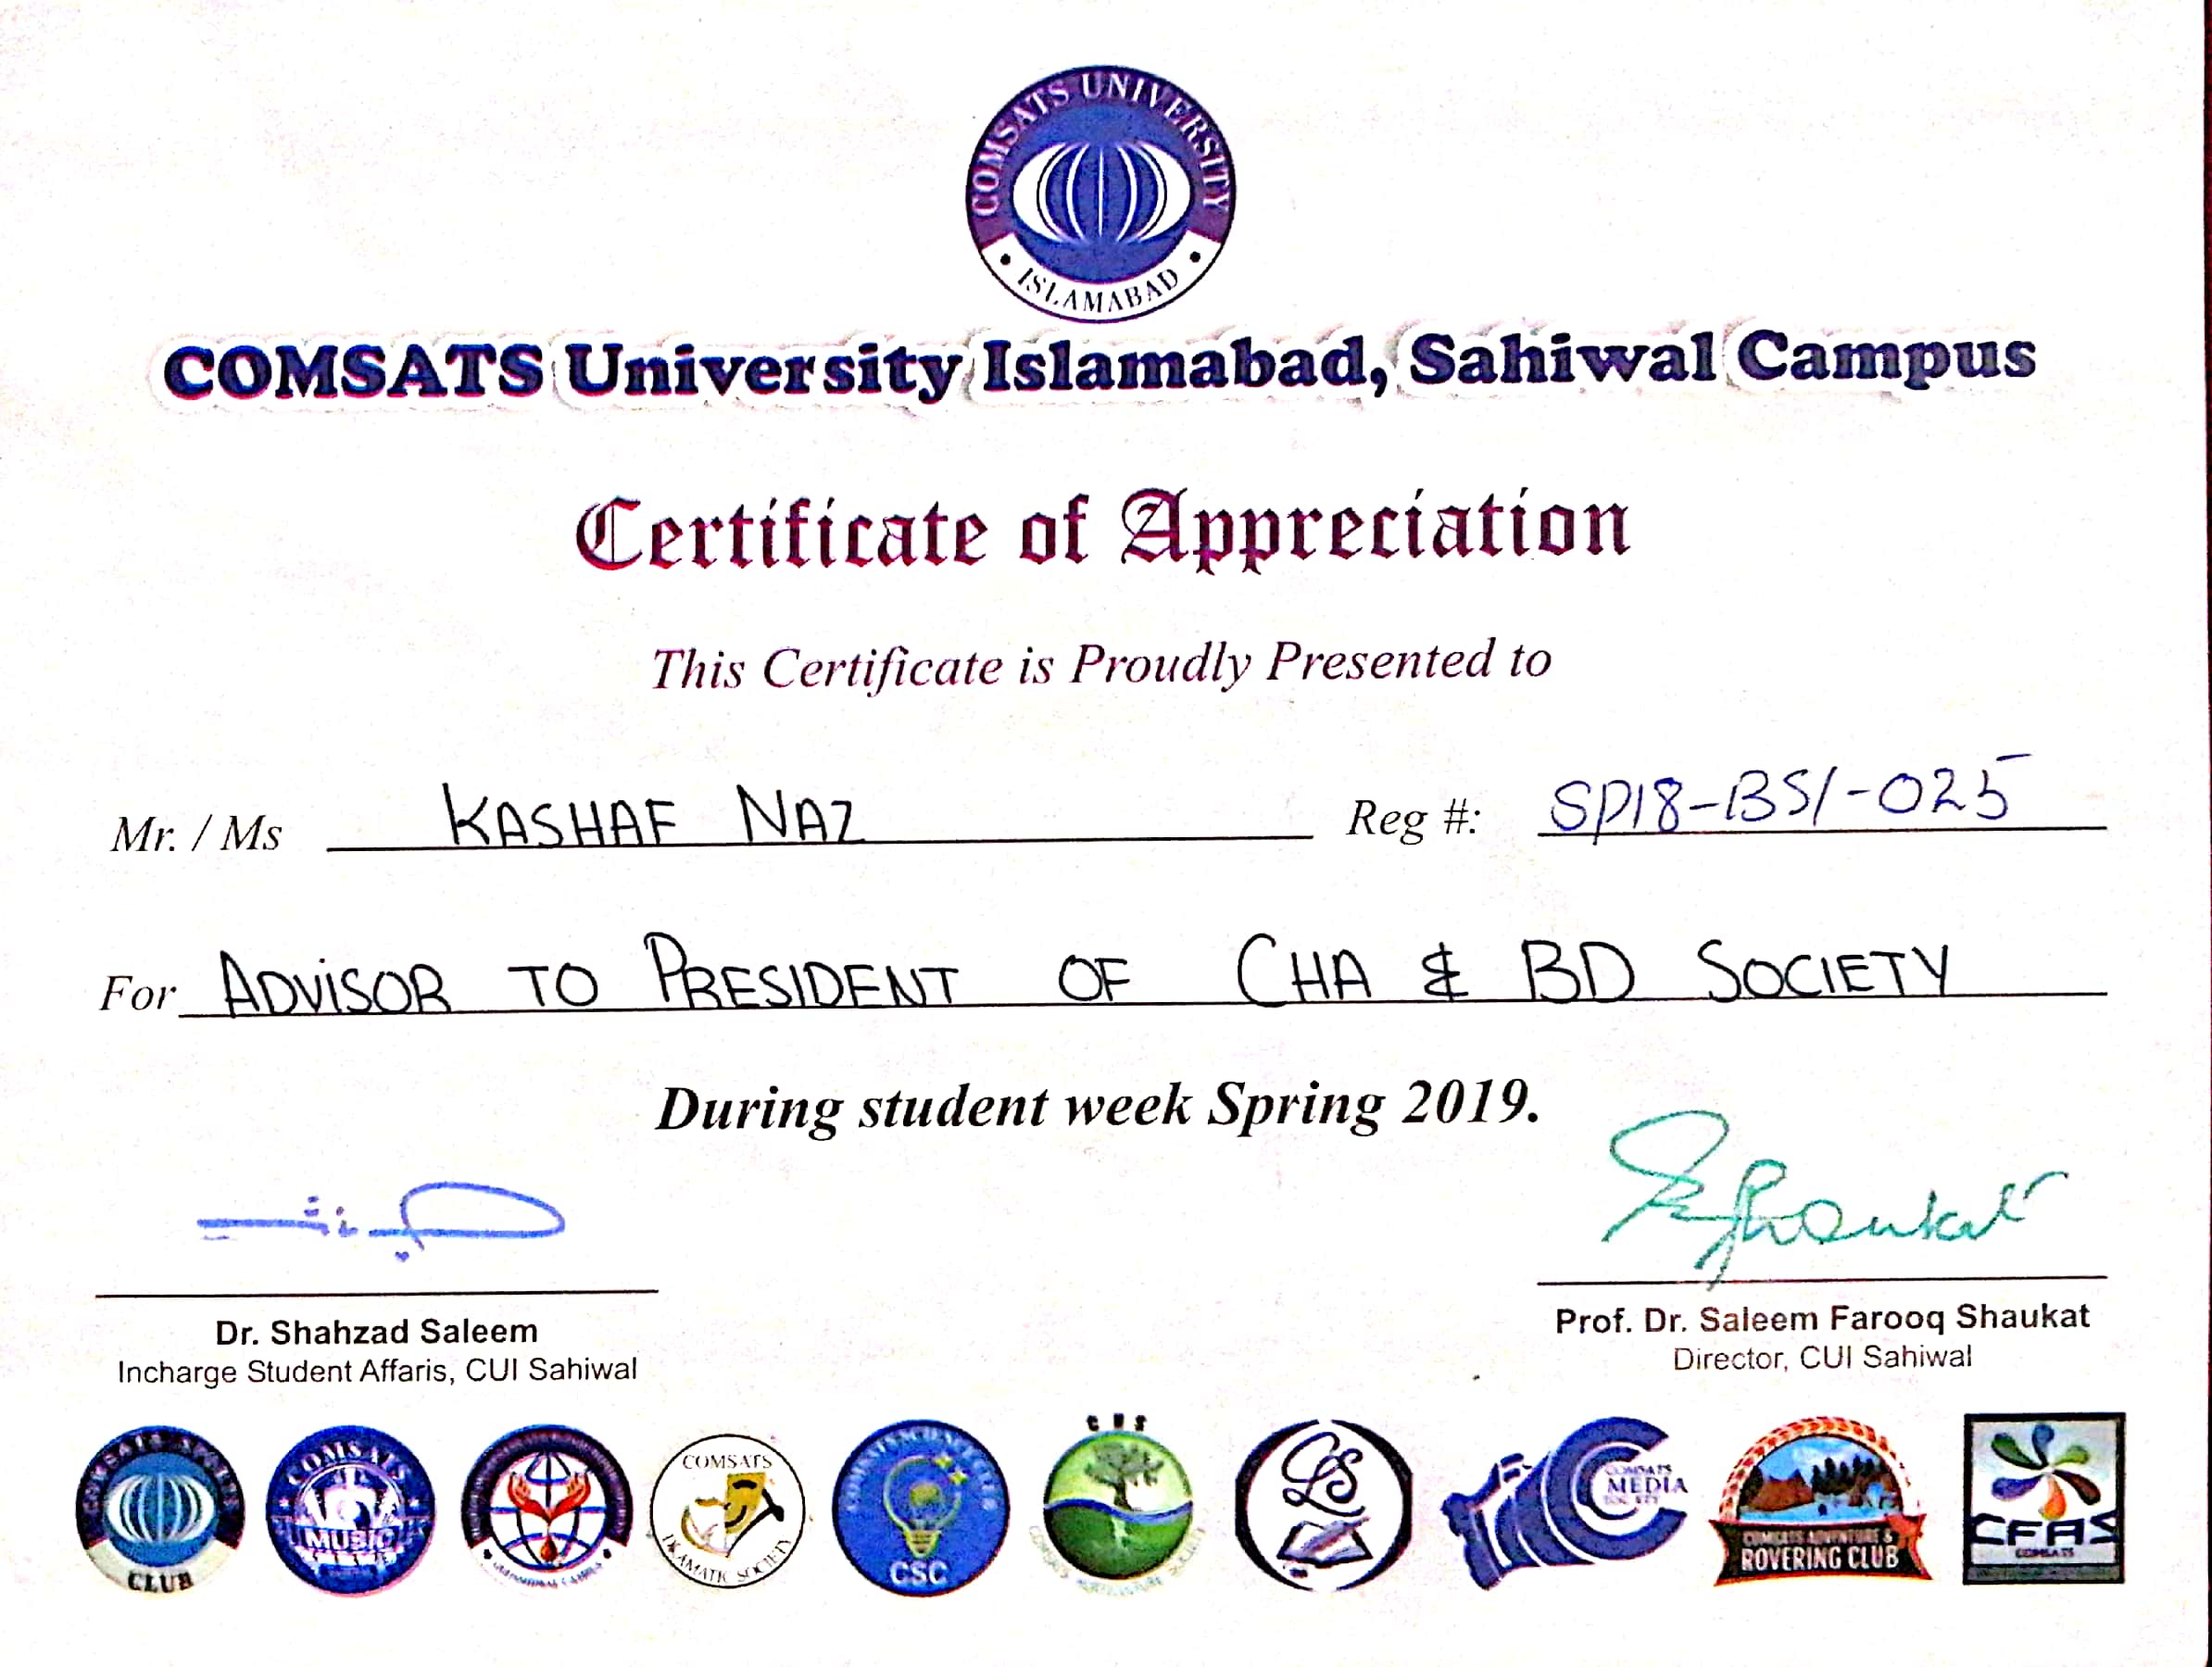 COMSATS UNIVERSITY
• ISLAMABAD •
COMSATS University Islamabad, Sahiwal Campus
Certificate of Appreciation
This Certificate is Proudly Presented to
Mr. / Ms KASHAF NAZ Reg #: SP18-BSI-025
For ADVISOR TO PRESIDENT OF CHA & BD SOCIETY
During student week Spring 2019.
Dr. Shahzad Saleem
Incharge Student Affaris, CUI Sahiwal
Prof. Dr. Saleem Farooq Shaukat
Director, CUI Sahiwal
COMSATS SPORTS CLUB
COMSATS MUSIC
COMSATS DRAMATIC SOCIETY
CSC
CHS
LS
COMSATS MEDIA SOCIETY
COMSATS ADVENTURE & ROVERING CLUB
CFAS COMSATS